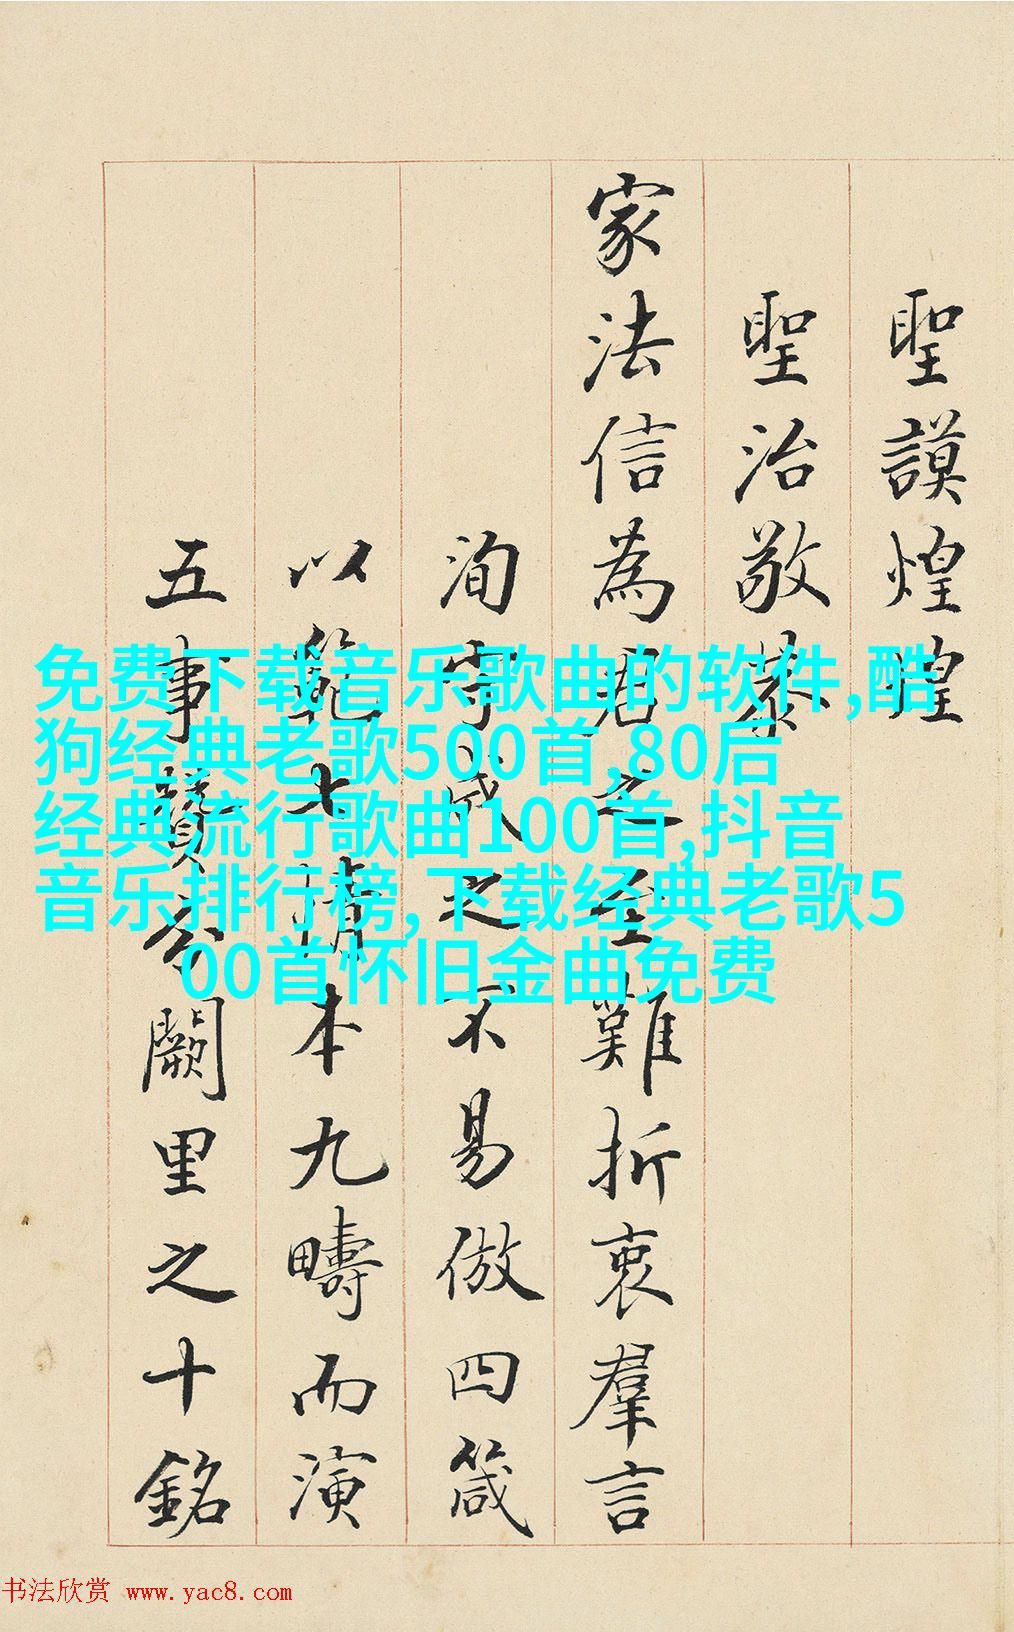 聖謨煌煌
聖治敬
家法信為君之至難折衷羣言
洵守成之不易倣四箴
以範七情本九疇而演
五事闕里之十銘
免费下载音乐歌曲的软件,酷
狗经典老歌500首,80后
经典流行歌曲100首,抖音
音乐排行榜,下载经典老歌5
00首怀旧金曲免费
书法欣赏 www.yac8.com